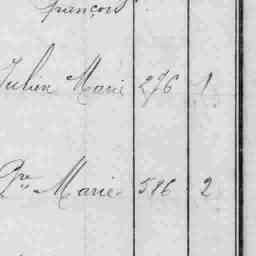 françois
Julien Marie 276 1
Pre Marie 516 2